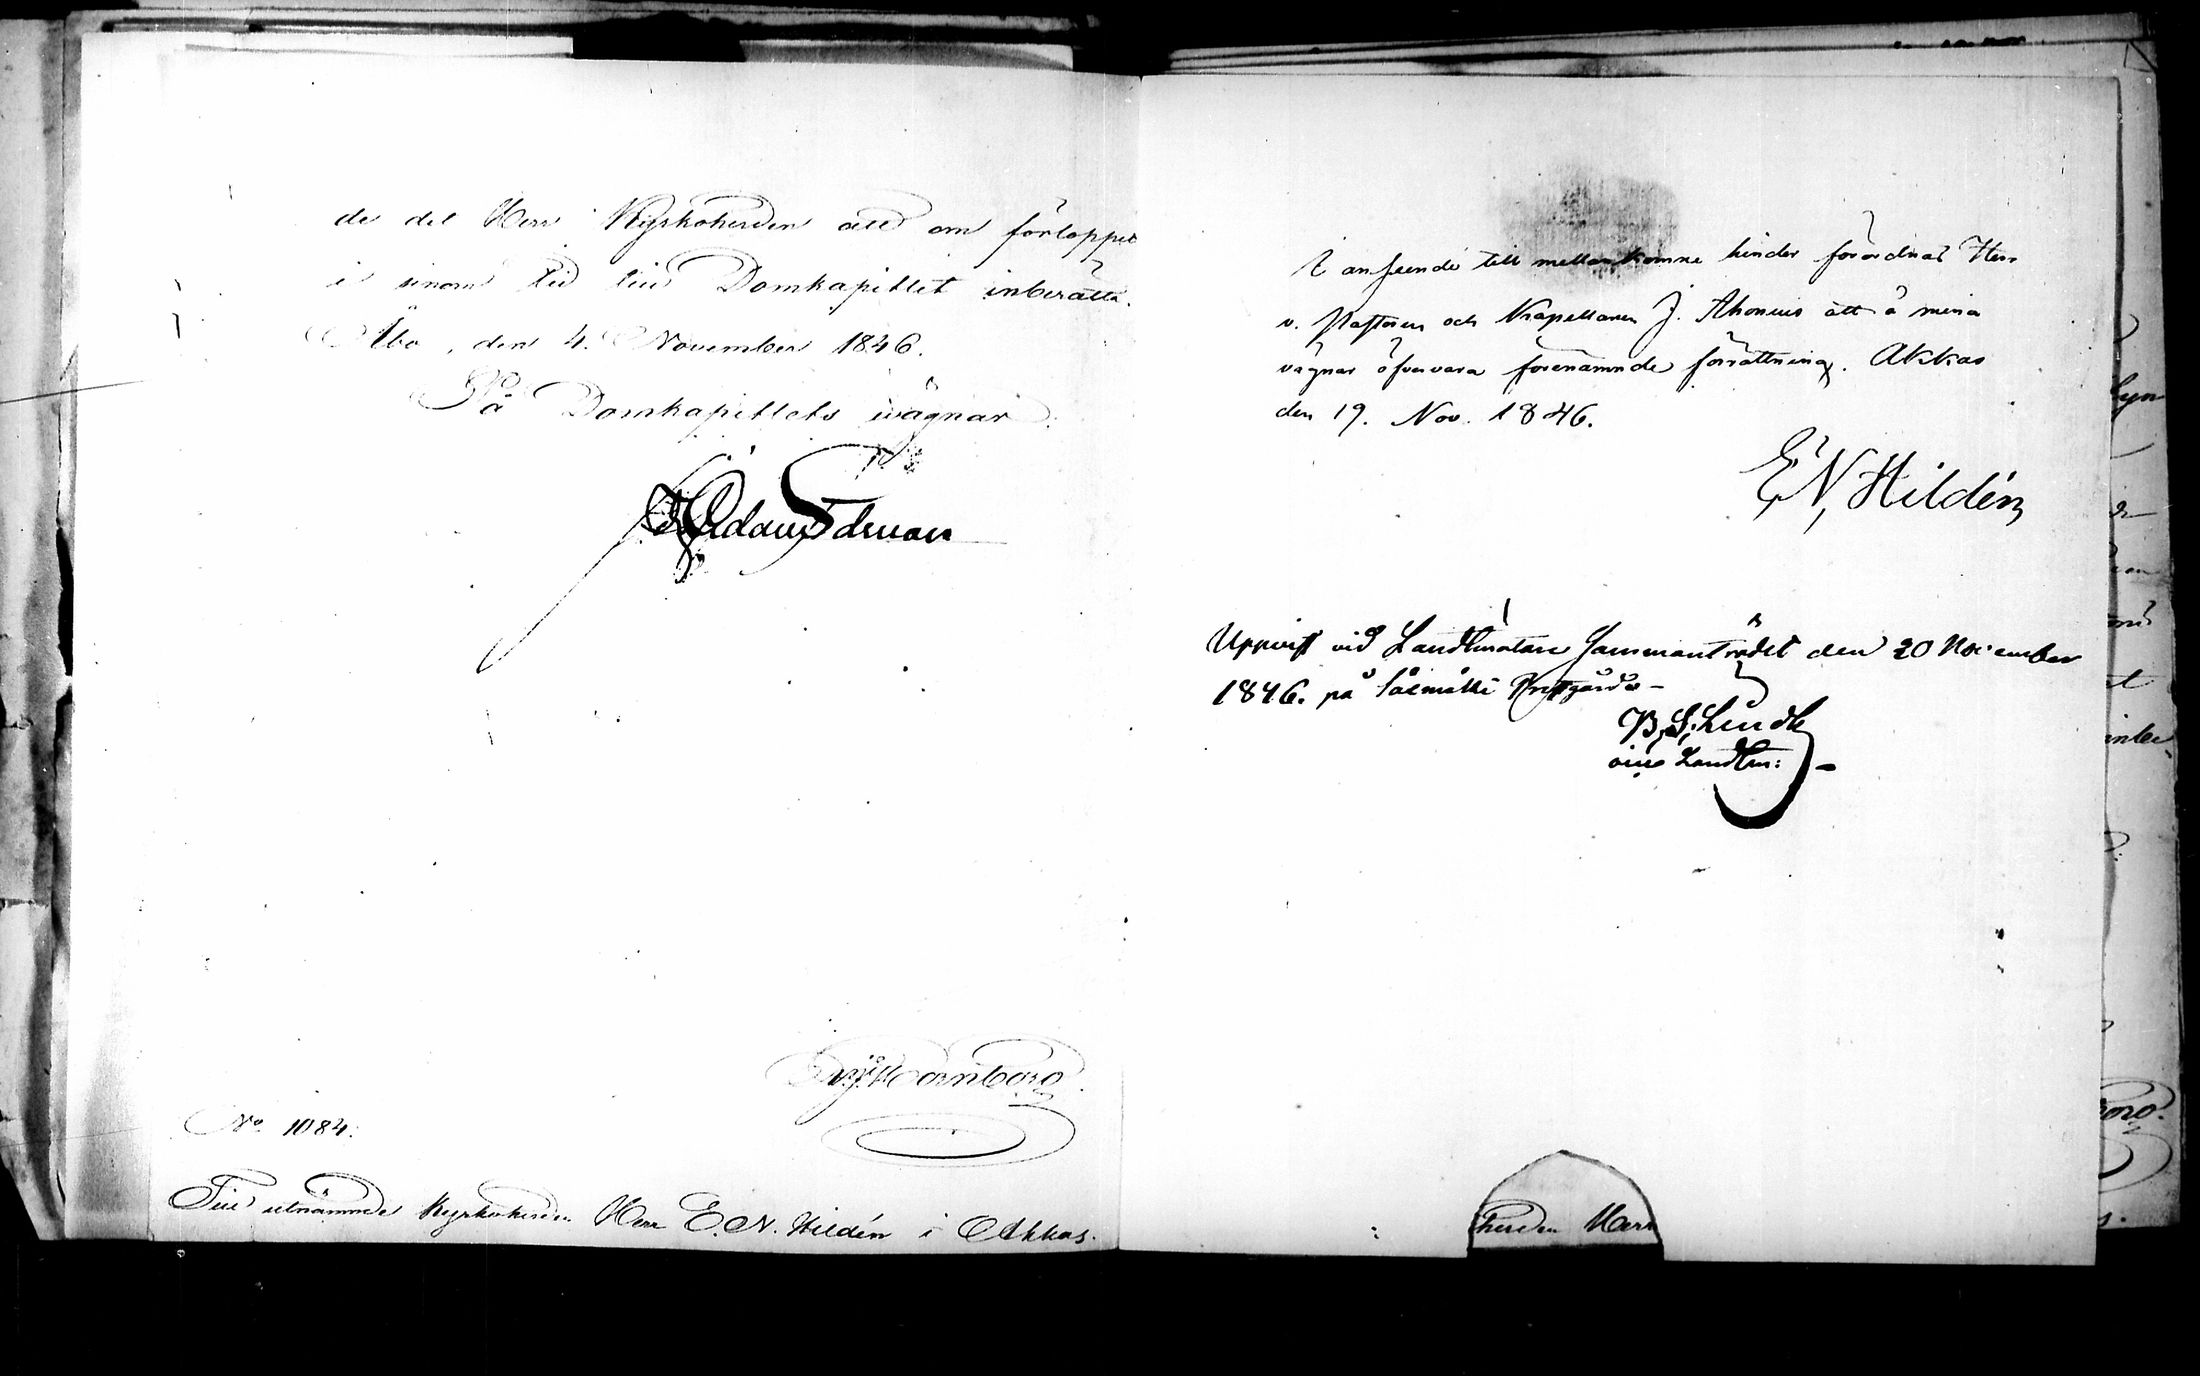 de det Herr Kyrkoherden att om förloppet
i sinom tid till Domkapitlet inberätta.
Åbo, den 4. November 1846.
På Domkapitlets wägnar:
No 1084.
Till utnämnde Kyrkoherden Herr E. N. Hildén i Akkas.
I anseende till mellankomne hinder förordnas Herr
v. Pastoren och Kapellanen J. Ahonius att å mina
vägnar öfvervara förenämnde förrättning. Akkas
den 19. Nov. 1846.
E. N. Hildén
Uppvist vid Landtmätare Sammanträdet den 20 November
1846. på
B. S. Lindh
Landtm:
herden Herr